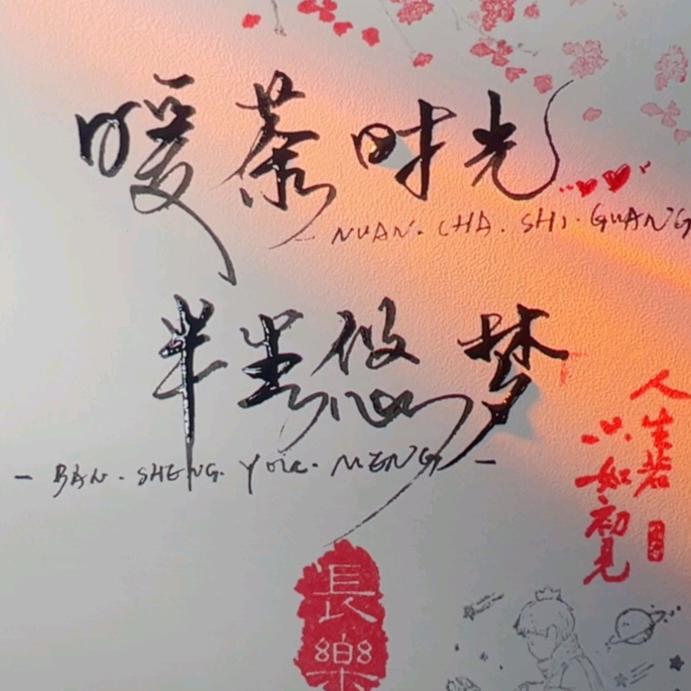 暖茶时光
NUAN·CHA·SHI·GUANG
半生悠梦
- BAN·SHENG·YOU·MENG -
人生若
只如初見
長樂